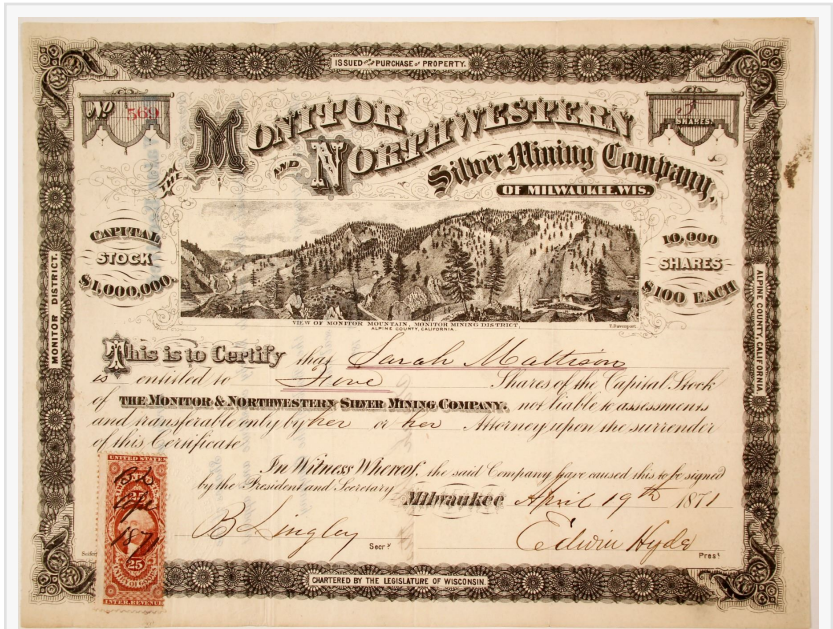 ISSUED FOR THE PURCHASE OF PROPERTY.
No 569
5 SHARES.
THE MONITOR
AND NORTHWESTERN
Silver Mining Company,
OF MILWAUKEE, WIS.
CAPITAL
STOCK
$1,000,000.
10,000
SHARES
$100 EACH
MONITOR DISTRICT.
ALPINE COUNTY, CALIFORNIA
VIEW OF MONITOR MOUNTAIN, MONITOR MINING DISTRICT,
ALPINE COUNTY, CALIFORNIA.
This is to Certify that Sarah Mattison
is entitled to Five Shares of the Capital Stock
of THE MONITOR & NORTHWESTERN SILVER MINING COMPANY, not liable to assessments
and transferable only by her or her Attorney upon the surrender
of this Certificate
In Witness Whereof, the said Company have caused this to be signed
by the President and Secretary
Milwaukee April 19th 1871
B Lingley Secy
Edwin Hyde Prest
UNITED STATES
25
1871
25
INTER. REVENUE
CHARTERED BY THE LEGISLATURE OF WISCONSIN.